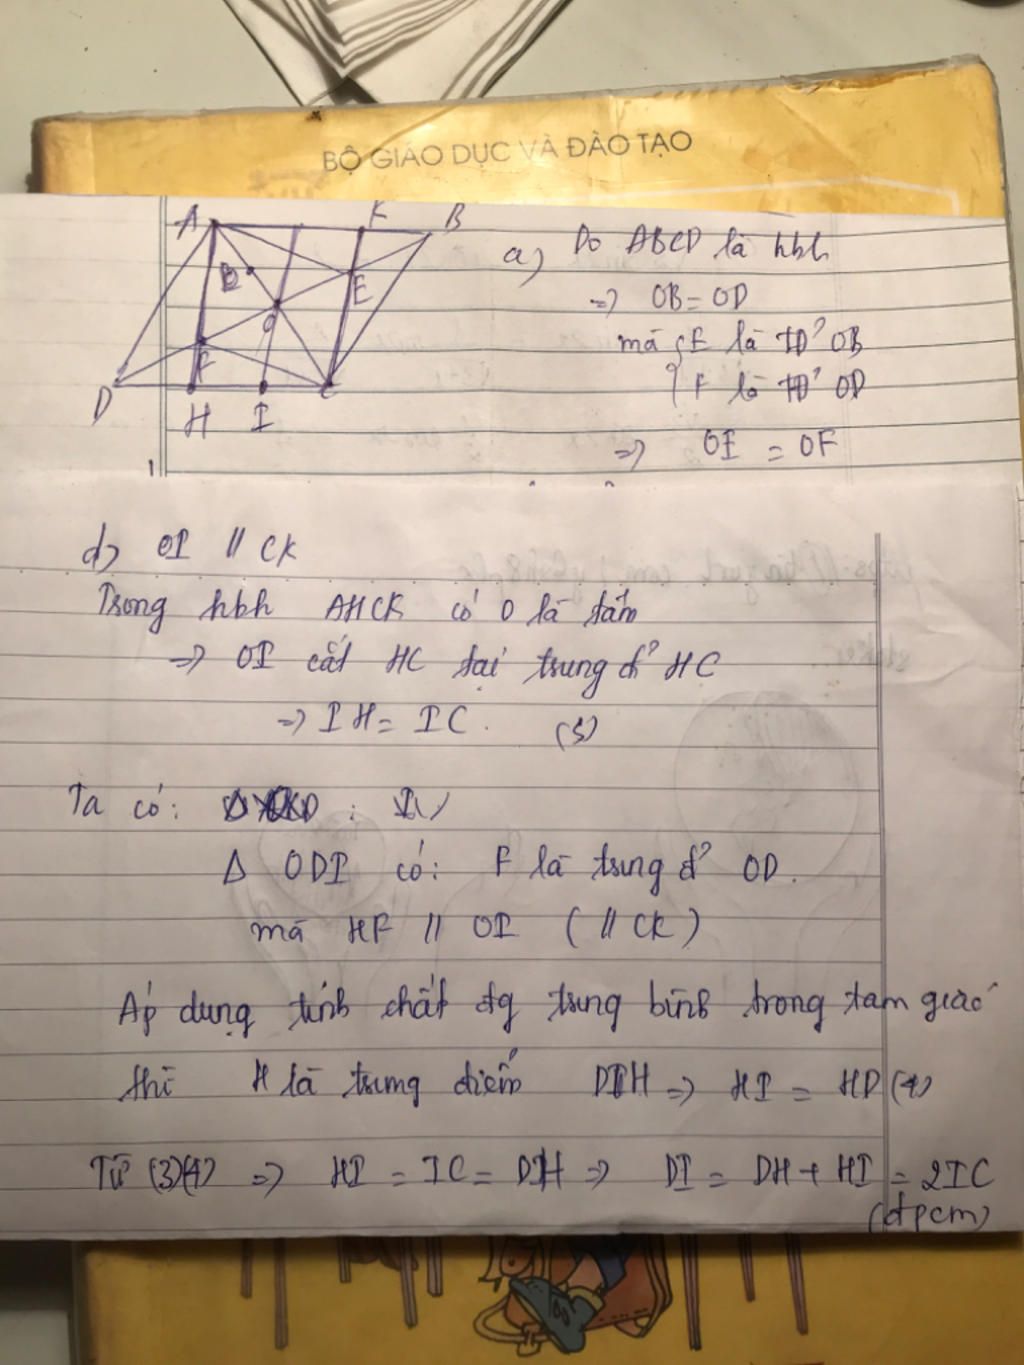 BỘ GIÁO DỤC VÀ ĐÀO TẠO
A K B
E
O
F
D H I C
a) Do ABCD là hbh
=> OB = OD
mà { E là TĐ' OB
F là TĐ' OD
=> OE = OF
d) OI // CK
Trong hbh AHCK có O là tâm
=> OI cắt HC tại trung đ' HC
=> IH = IC. (3)
Ta có:
Δ ODI có: F là trung đ' OD.
mà HF // OI ( // CK )
Áp dụng tính chất đg trung bình trong tam giác
thì H là trung điểm => HI = HD (4)
Từ (3)(4) => HI = IC = DH => DI = DH + HI = 2IC
(đpcm)